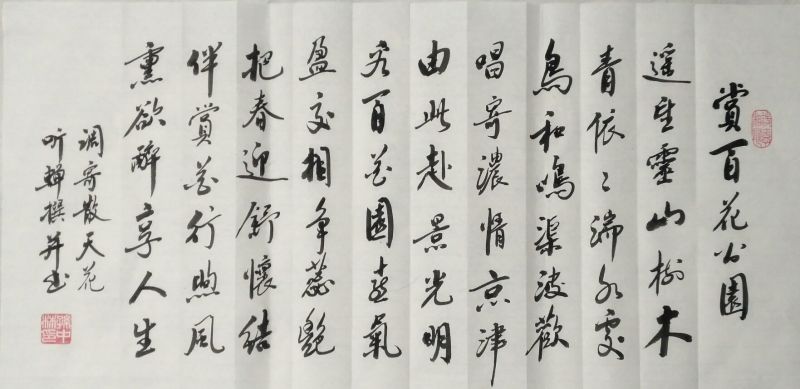 賞百花公園
遥望靈山樹木
青依々湍水處
鳥和鳴渠波歡
唱寄濃情京津
由此赴景光明
百花園喜氣
盈交相争蕊艷
把春迎舒懷結
伴賞花行煦風
熏欲醉享人生
調寄散天花
听蟬撰并书